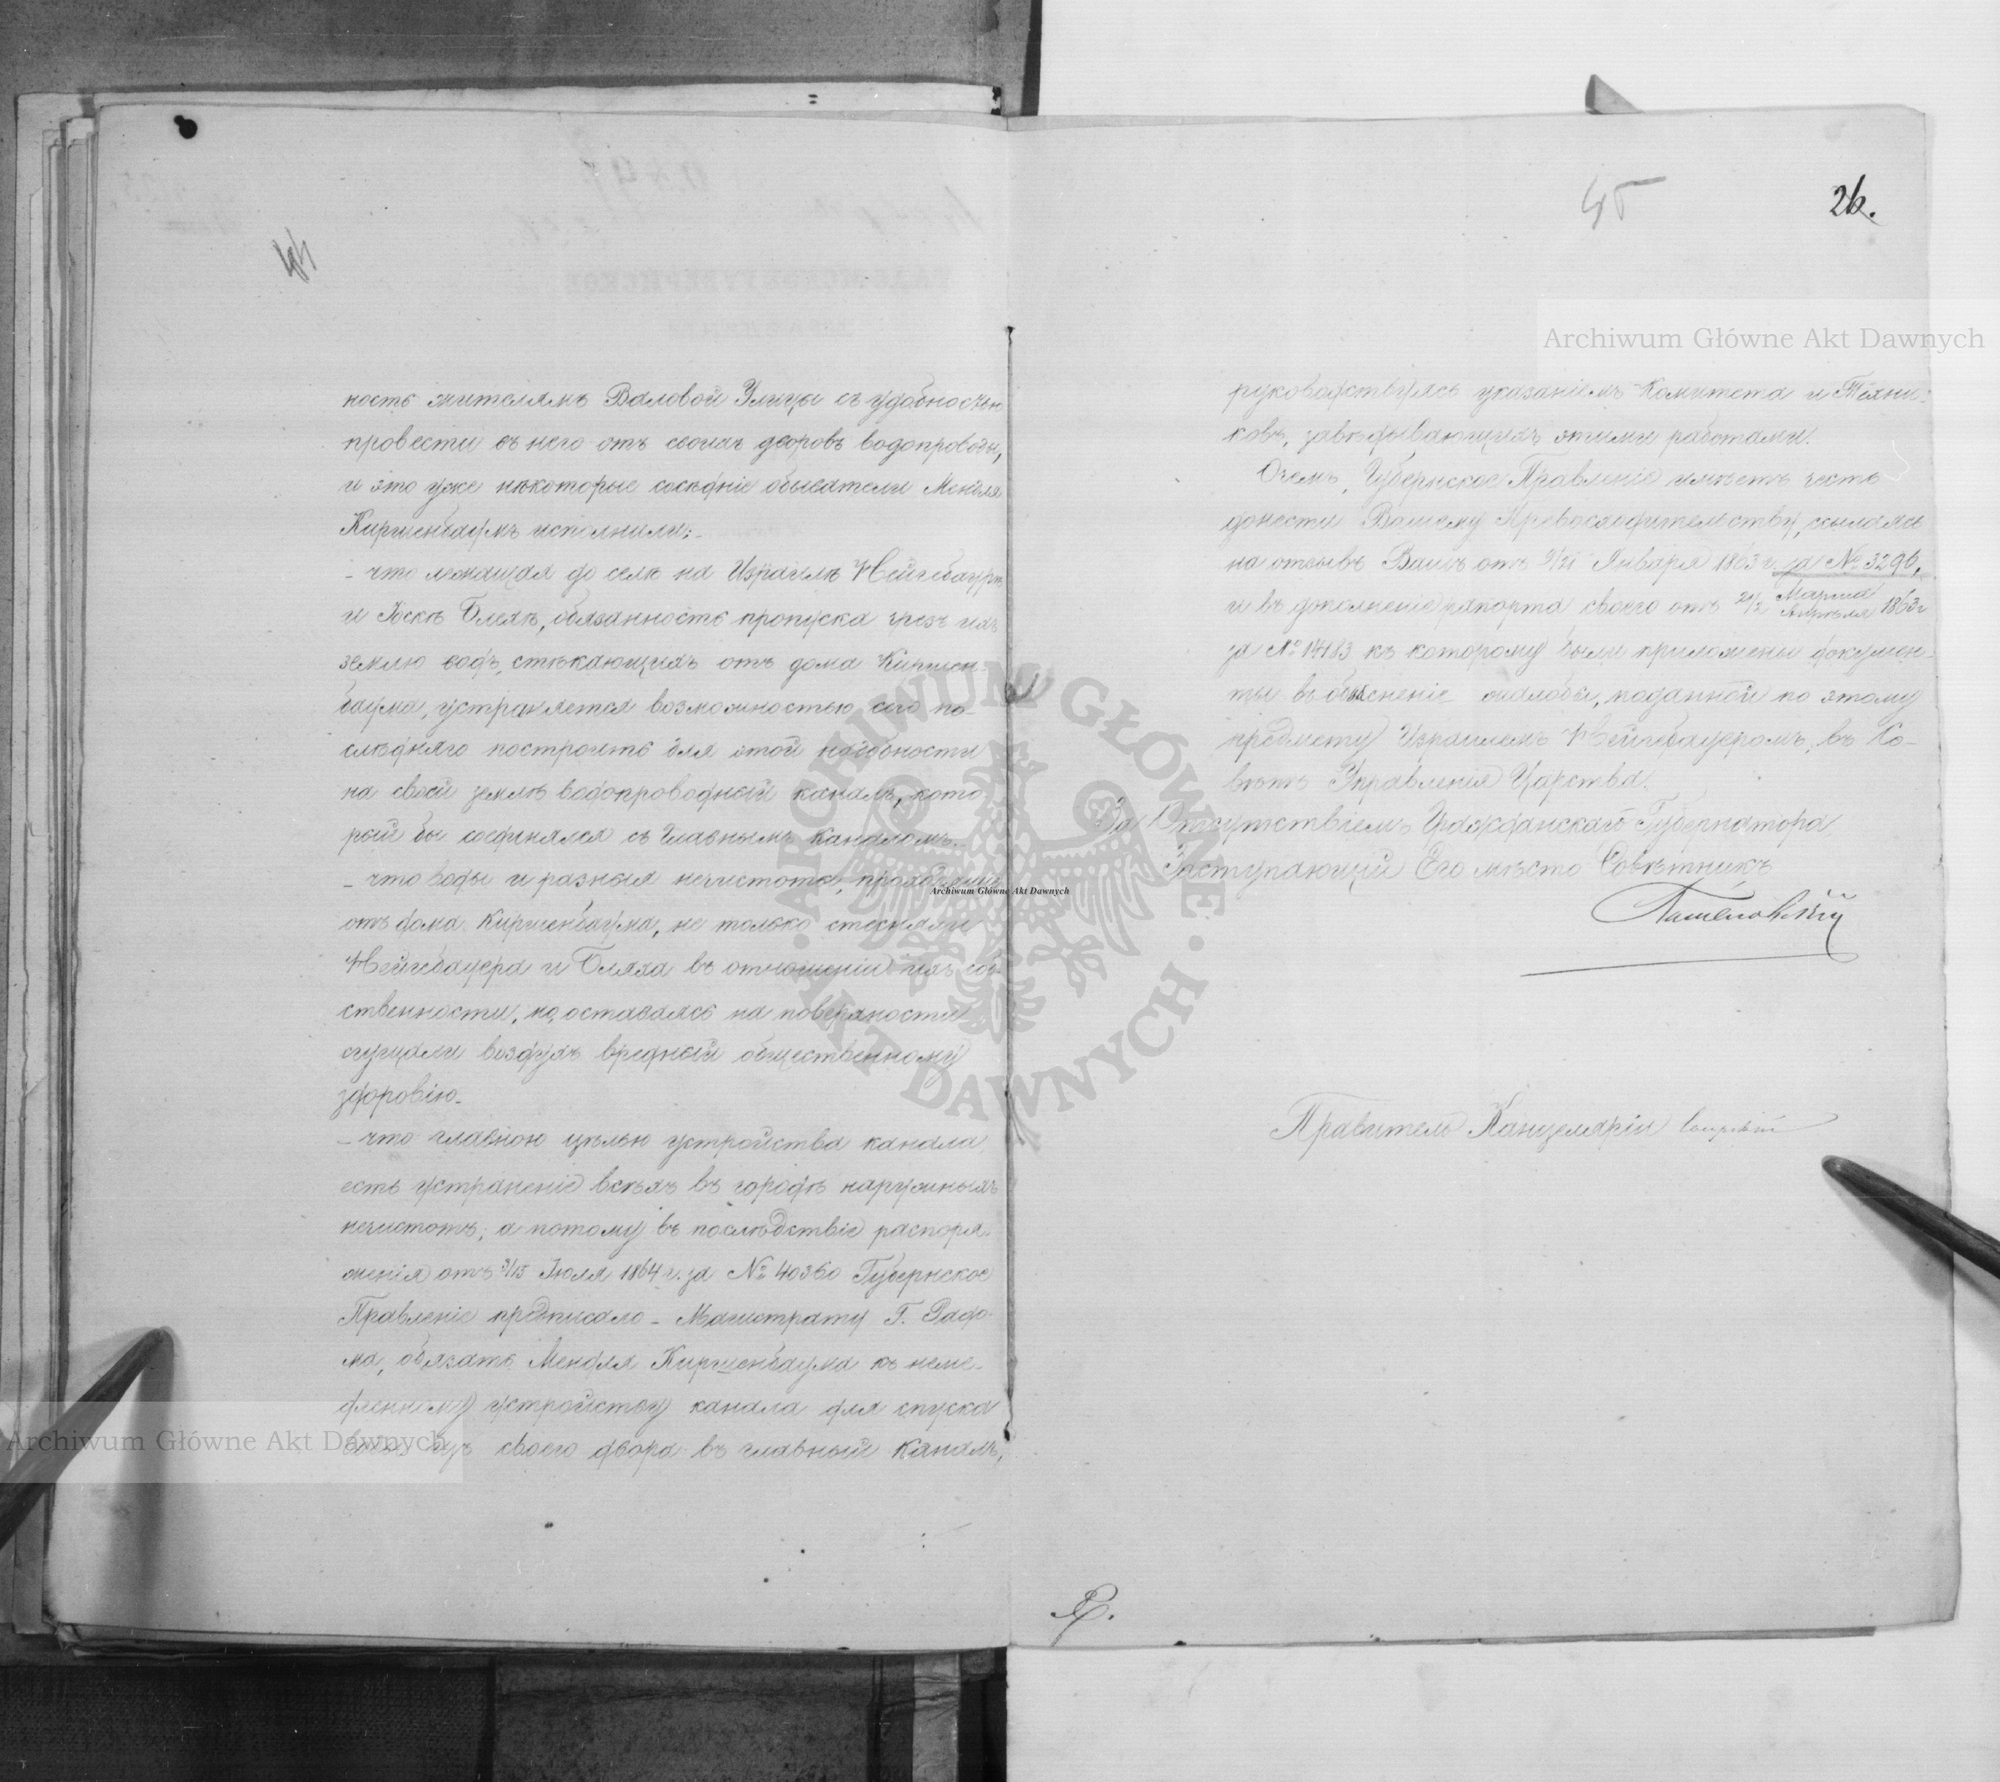 44
ность жителямъ Валовой Улицы съ удобностью
провести въ него отъ своихъ дворовъ водопроводы,
и это уже нѣкоторые сосѣдніе обыватели Менделя
Киршенбаумъ исполнили;-
- что лежащая до селѣ на Израилѣ Нейгебауерѣ
и Іоскѣ Блехѣ, обязанность пропуска чрезъ ихъ
землю водъ, стѣкающихъ отъ дома Киршен-
баума, устраняется возможностью сего по-
слѣдняго построить для этой надобности
на своей землѣ водопроводный каналъ, кото
рый бы соединялся съ Главнымъ каналомъ.-
- что воды и разныя нечистоты,
отъ дома Киршенбаума, не только стесняли
Нейгебауера и Бляха въ отношеніи ихъ соб-
ственности, но, оставаясь на поверхности
сгущали воздухъ вредный общественному
здоровію.-
- что главною цѣлью устройства канала
есть устраненіе всѣхъ въ городѣ наружныхъ
нечистотъ; а потому въ послѣдствіе распоря-
женія отъ 3/15 Іюля 1864 г. за № 40360 Губернское
Правленіе предписало - Магистрату Г. Радо-
ма, обязать Менделя Киршенбаума къ неме-
дленному устройству канала для спуска
изъ своего двора въ главный каналъ,
45
26.
руководствуясь указаніемъ Комитета и Техни-
ковъ, завѣдывающихъ этими работами.
Очемъ, Губернское Правленіе имѣетъ честь
донести Вашему Превосходительству, ссылаясь
на отзывъ Вашъ отъ 9/21 Января 1863 г. за № 3296,
и въ дополненіе рапорта своего отъ 21/2 Марта/Апрѣля 1863 г
за № 14183 къ которому были приложены докумен-
ты въ объясненіе жалобы, поданной по этому
предмету Израилемъ Нейгебауеромъ, въ Со-
вѣтъ Управленія Царства.
За Отсутствіемъ Гражданскаго Губернатора
Заступающій Его мѣсто Совѣтникъ
Правитель Канцеляріи
Archiwum Główne Akt Dawnych
Archiwum Główne Akt Dawnych
Archiwum Główne Akt Dawnych
ARCHIWUM GŁÓWNE · AKT DAWNYCH ·